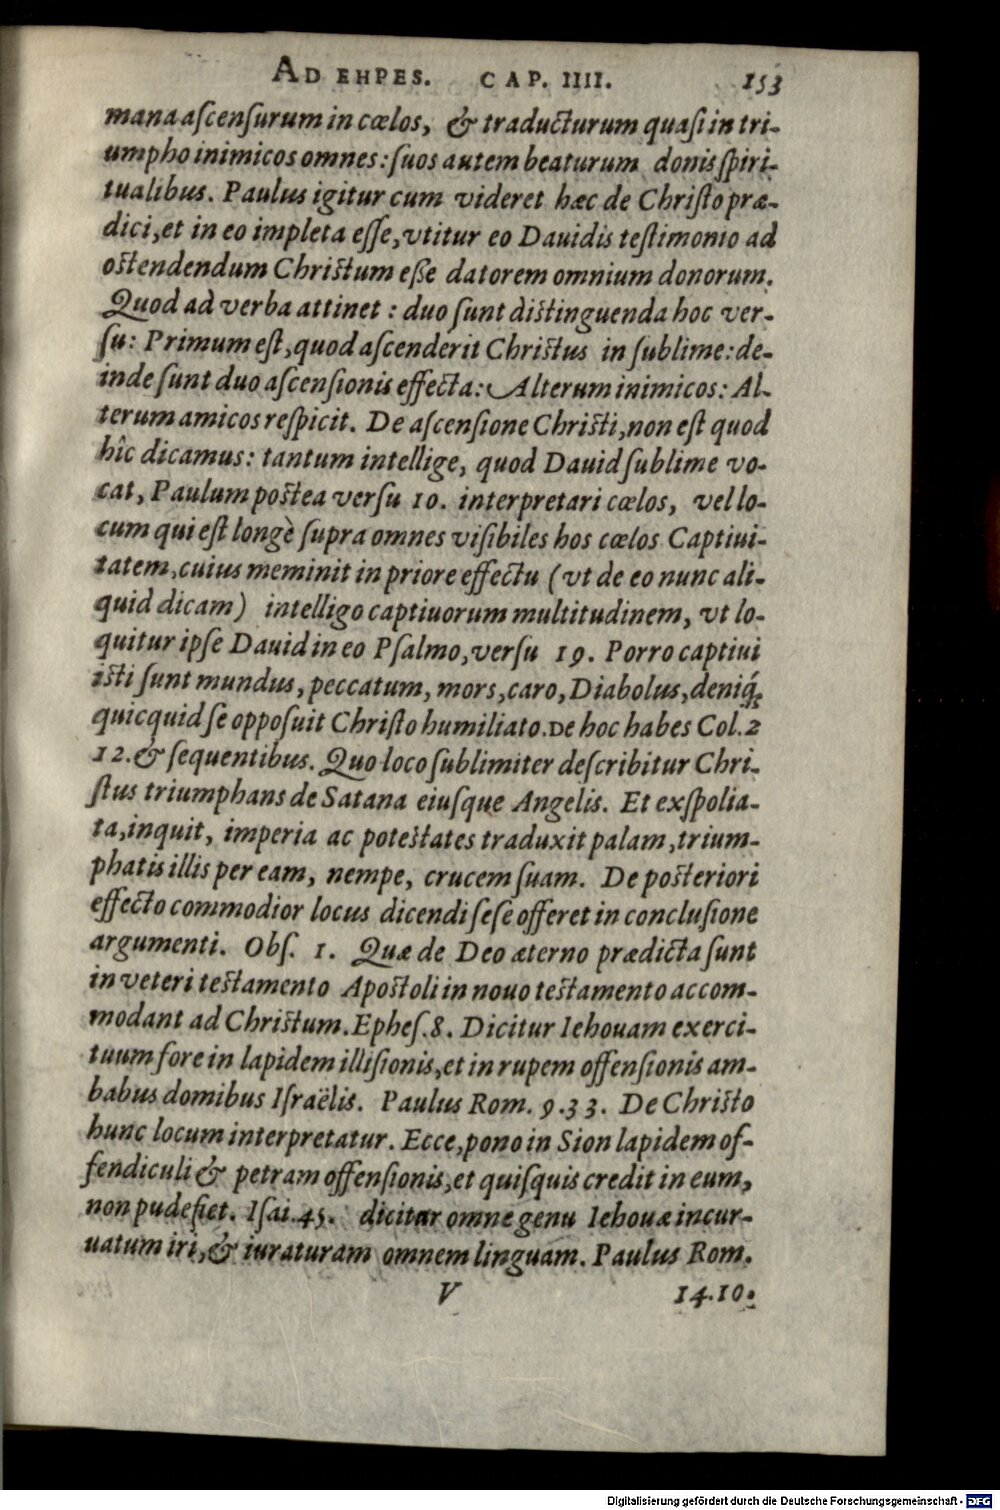 AD EHPES. CAP. IIII. 153
mana aſcenſurum in cœlos, & traducturum quaſi in tri-
umpho inimicos omnes: ſuos autem beaturum donis ſpiri-
tualibus. Paulus igitur cum videret hæc de Chriſto præ-
dici, et in eo impleta eſſe, vtitur eo Dauidis teſtimonio ad
oſtendendum Chriſtum eße datorem omnium donorum.
Quod ad verba attinet: duo ſunt diſtinguenda hoc ver-
ſu: Primum eſt, quod aſcenderit Chriſtus in ſublime: de-
inde ſunt duo aſcenſionis effecta: Alterum inimicos: Al-
terum amicos reſpicit. De aſcenſione Chriſti, non eſt quod
hîc dicamus: tantum intellige, quod Dauid ſublime vo-
cat, Paulum poſtea verſu 10. interpretari cœlos, vel lo-
cum qui eſt longè ſupra omnes viſibiles hos cœlos Captiui-
tatem, cuius meminit in priore effectu (vt de eo nunc ali-
quid dicam) intelligo captiuorum multitudinem, vt lo-
quitur ipſe Dauid in eo Pſalmo, verſu 19. Porro captiui
iſti ſunt mundus, peccatum, mors, caro, Diabolus, deniq́;
quicquid ſe oppoſuit Chriſto humiliato. De hoc habes Col. 2
12. & ſequentibus. Quo loco ſublimiter deſcribitur Chri-
ſtus triumphans de Satana eiuſque Angelis. Et exſpolia-
ta, inquit, imperia ac poteſtates traduxit palam, trium-
phatis illis per eam, nempe, crucem ſuam. De poſteriori
effecto commodior locus dicendi ſeſe offeret in concluſione
argumenti. Obſ. 1. Quæ de Deo æterno prædicta ſunt
in veteri teſtamento Apoſtoli in nouo teſtamento accom-
modant ad Chriſtum. Epheſ. 8. Dicitur Iehouam exerci-
tuum fore in lapidem illiſionis, et in rupem offenſionis am-
babus domibus Iſraëlis. Paulus Rom. 9.33. De Chriſto
hunc locum interpretatur. Ecce, pono in Sion lapidem of-
fendiculi & petram offenſionis, et quiſquis credit in eum,
non pudefiet. Iſai. 45. dicitur omne genu Iehouæ incur-
uatum iri, & iuraturam omnem linguam. Paulus Rom.
V 14.10.
Digitalisierung gefördert durch die Deutsche Forschungsgemeinschaft - DFG